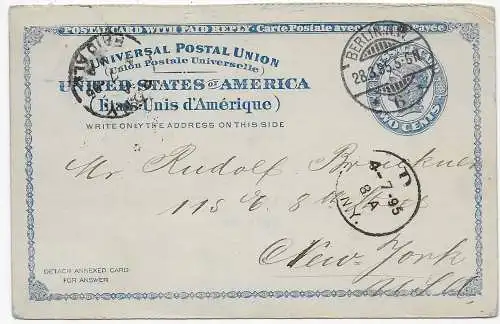 POSTAL CARD WITH PAID REPLY.-Carte Postale avec réponse payée
UNIVERSAL POSTAL UNION
(Union Postale Universelle)
UNITED STATES OF AMERICA
(États-Unis d'Amérique)
WRITE ONLY THE ADDRESS ON THIS SIDE
TWO CENTS
BERLIN
28.3.95.5-6N
PAID
ALL
T
4-7-95
8A
N.Y.
Mr. Rudolf Bruckner
115 E. 8th
New-York
U.S.A.
DETACH ANNEXED CARD
FOR ANSWER